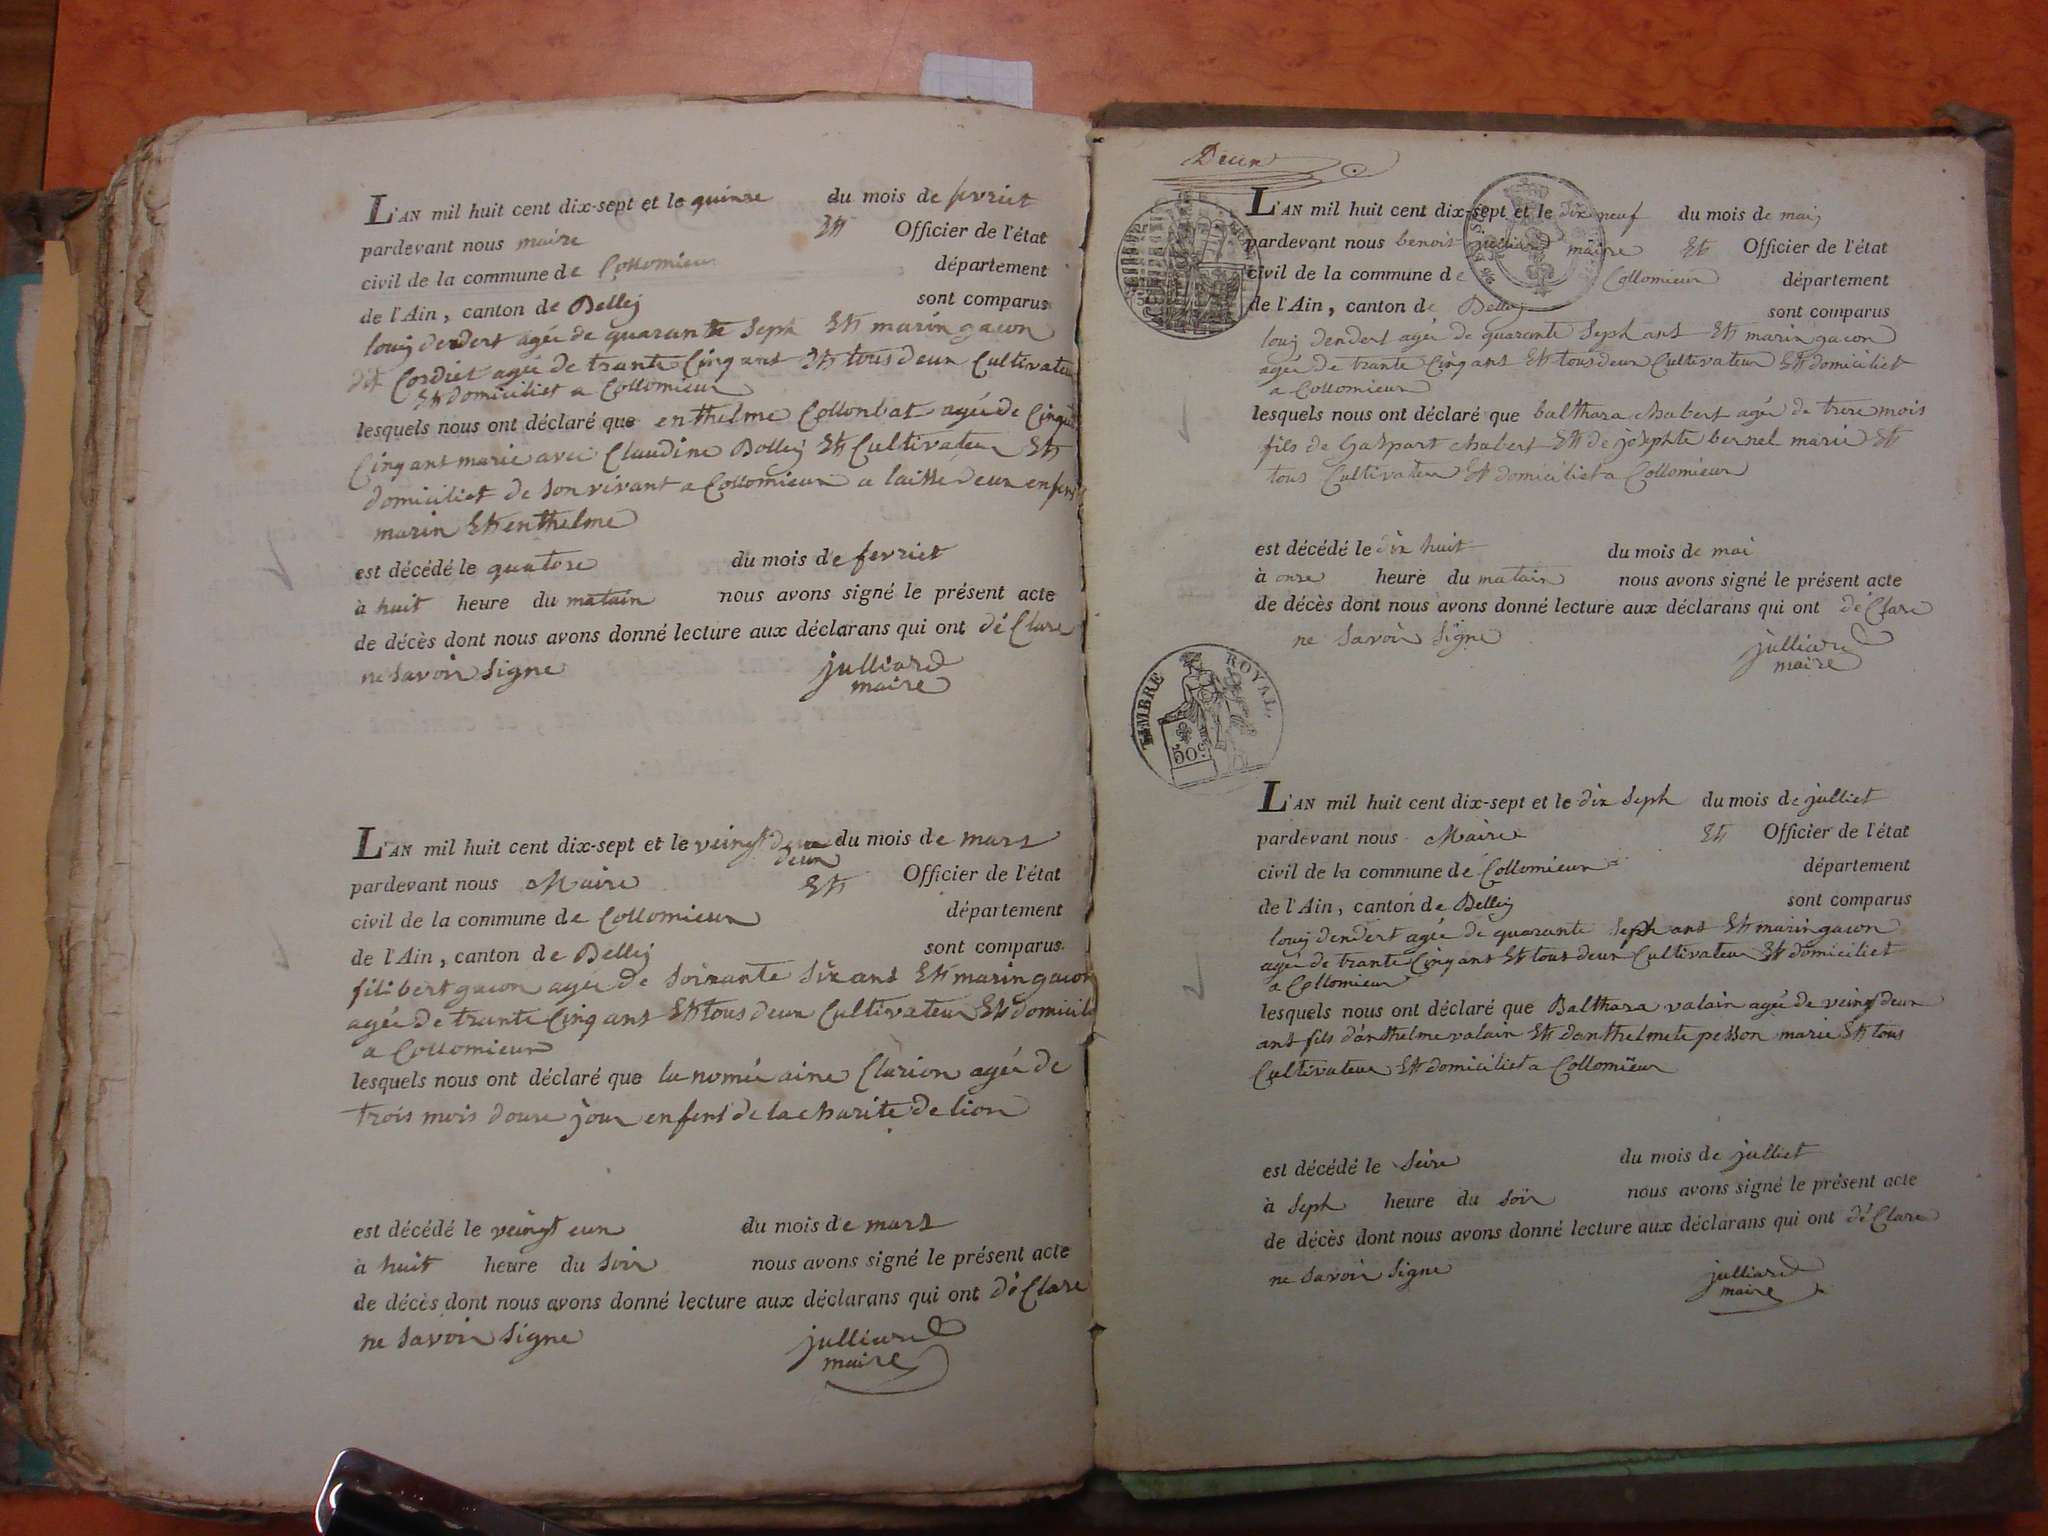 L'AN mil huit cent dix-sept et le quinze du mois de fevriet
pardevant nous maire Et Officier de l'état
civil de la commune de Collomieu département
de l'Ain, canton de Belley sont comparus
louis dendert agée de quarante seph Et marin gacon
dit Cordiet agée de trante Cinq ans Et tous deux Cultivateur
Et domiciliet a Collomieux
lesquels nous ont déclaré que enthelme Collonbat agée de Cinqu
Cinq ant marie avec Claudine Bolley Et Cultivateur Et
domiciliet de son vivant a Collomieux a laisse deux enfens
marin Et enthelme
est décédé le quatorse du mois de fevriet
à huit heure du matain nous avons signé le présent acte
de décès dont nous avons donné lecture aux déclarans qui ont dé Clare
ne savoir signe julliard
maire
L'AN mil huit cent dix-sept et le veingt deux du mois de mars
deux
pardevant nous Maire Et Officier de l'état
civil de la commune de Collomieux département
de l'Ain, canton de Belley sont comparus
filibert gacon agée de soixante six ans Et marin gacon
agée de trante Cinq ans Et tous deux Cultivateur Et domicili
a Collomieux
lesquels nous ont déclaré que la nomée aine Clarion agée de
trois mois douze jour enfens de la charite de lion
est décédé le veingt eun du mois de mars
à huit heure du soir nous avons signé le présent acte
de décès dont nous avons donné lecture aux déclarans qui ont dé Clare
ne savoir signe julliard
maire
L'AN mil huit cent dix-sept et le dix neuf du mois de mai
pardevant nous benoit julliard maire Et Officier de l'état
civil de la commune de Collomieux département
de l'Ain, canton de Belley sont comparus
louis dendert agée de quarante seph ans Et marin gacon
agée de trante Cinq ans Et tous deux Cultivateur Et domiciliet
a Collomieux
lesquels nous ont déclaré que balthasa chabert agée de treze mois
fils de Gaspart chabert Et de josephte bernel marie Et
tous Cultivateur Et domiciliet a Collomieux
est décédé le dix huit du mois de mai
à onze heure du matain nous avons signé le présent acte
de décès dont nous avons donné lecture aux déclarans qui ont dé Clare
ne savoir signe julliard
maire
TIMBRE ROYAL.
50c
L'AN mil huit cent dix-sept et le dix seph du mois de julliet
pardevant nous Maire Et Officier de l'état
civil de la commune de Collomieux département
de l'Ain, canton de Belley sont comparus
louis dendert agée de quarante seph ans Et marin gacon
agée de trante Cinq ans Et tous deux Cultivateur Et domiciliet
a Collomieux
lesquels nous ont déclaré que Balthasa valain agée de veingt deux
ans fils d'anthelme valain Et danthelmete pesson marie Et tous
Cultivateur Et domiciliet a Collomieux
est décédé le seize du mois de julliet
à seph heure du soir nous avons signé le présent acte
de décès dont nous avons donné lecture aux déclarans qui ont dé Clare
ne savoir signe julliard
maire